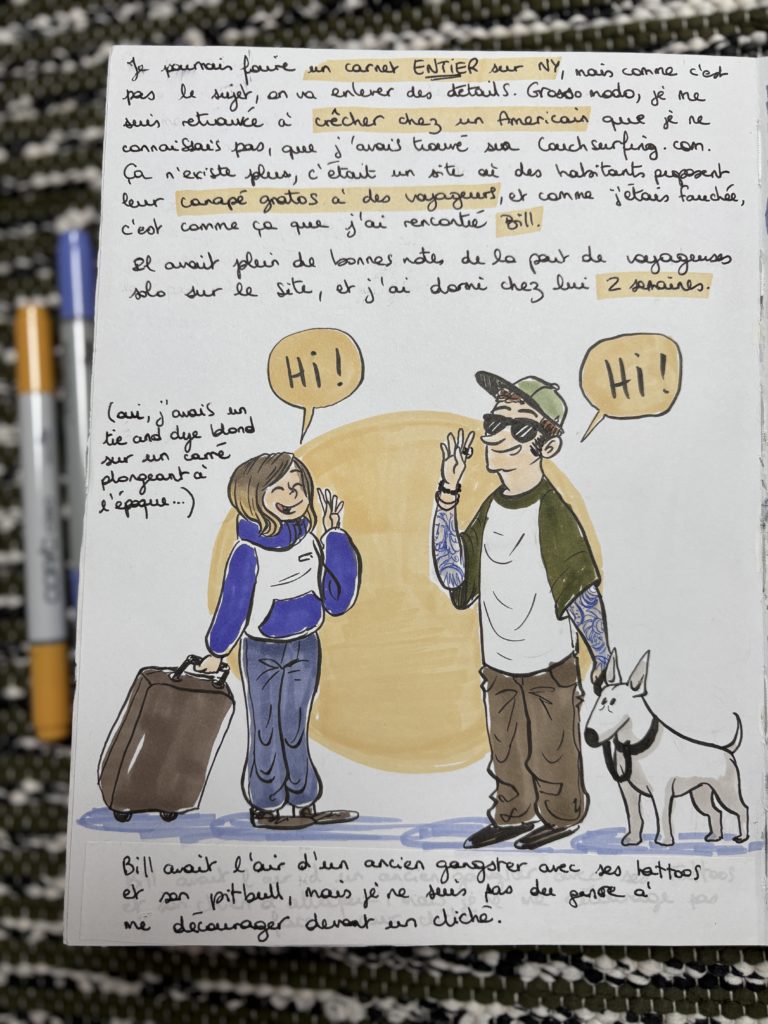 Je pourrais faire un carnet ENTIER sur NY, mais comme c'est
pas le sujet, on va enlever des détails. Grosso modo, je me
suis retrouvée à crêcher chez un Americain que je ne
connaissais pas, que j'avais trouvé sur Couchsurfing.com.
Ça n'existe plus, c'était un site où des habitants proposent
leur canapé gratos à des voyageurs, et comme j'étais fauchée,
c'est comme ça que j'ai rencontré Bill.
Il avait plein de bonnes notes de la part de voyageuses
solo sur le site, et j'ai dormi chez lui 2 semaines.
Hi!
Hi!
(oui, j'avais un
tie and dye blond
sur un carré
plongeant à
l'époque...)
Bill avait l'air d'un ancien gangster avec ses tattoos
et son pitbull, mais je ne suis pas du genre à
me décourager devant un cliché.
copic